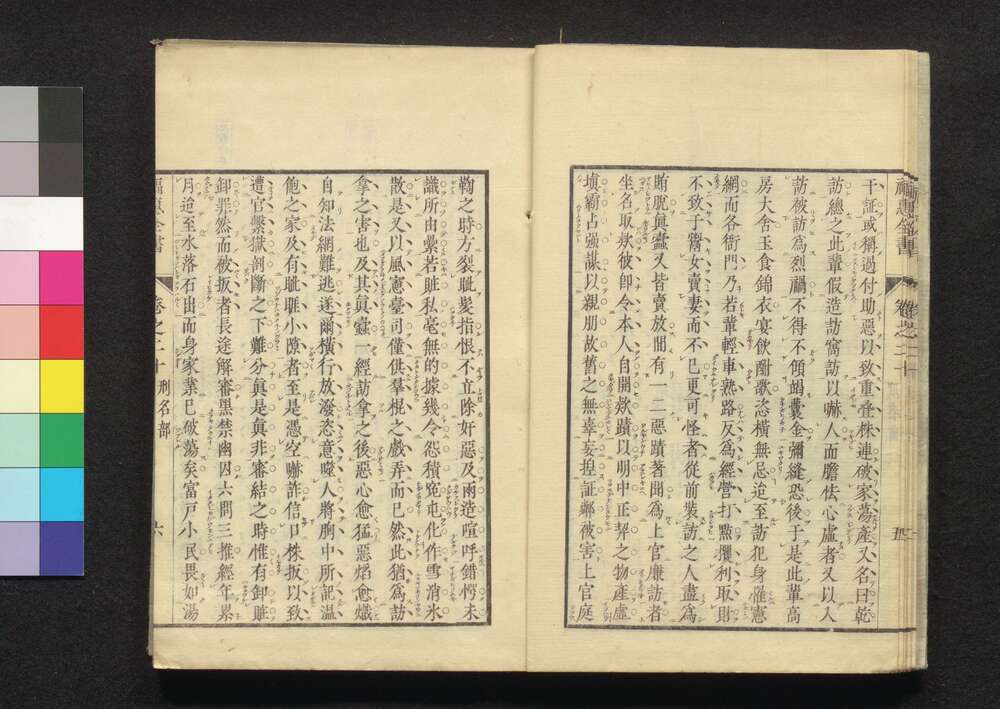 福惠全書
卷之二十
五
干証或稱過付助惡以致重疊株連破家蕩產又名曰乾
訪總之此輩假造訪窩訪以嚇人而膽怯心虛者又以人
訪被訪爲烈禍不得不傾竭囊金彌縫恐後于是此輩高
房大舍玉食錦衣宴飲酣歌恣橫無忌迨至訪犯身罹憲
網而各衙門乃若輩輕車熟路反爲經營打點攫利取財
不致于鬻女賣妻而不已更可怪者從前裝訪之人盡爲
賄脫眞蠹又皆賣放間有一二惡蹟著聞爲上官廉訪者
坐名取欵彼卽令本人自開欵蹟以明中正羿之物產虛
塡霸占强謀以親朋故舊之無辜妄揑証鄰被害上官庭
鞫之時方裂眦髮指恨不立除奸惡及兩造喧呼錯愕未
識所由纍若賍私毫無的據幾令怨積寃屯化作雪消氷
散是又以風憲臺司僅供羣棍之戲弄而已然此猶爲訪
拿之害也及其眞蠹一經訪拿之後惡心愈猛惡熖愈熾
自知法網難逃遂爾橫行放潑恣意噬人將胸中所記温
飽之家及有睚眦小隙者至是憑空嚇詐信口株扳以致
遭官繫獄剖斷之下難分眞是眞非審結之時惟有卸賍
卸罪然而被扳者長途解審黑禁幽囚六問三推經年累
月迨至水落石出而身家業已破蕩矣富戸小民畏如湯
福惠全書
卷之二十
刑名部
六